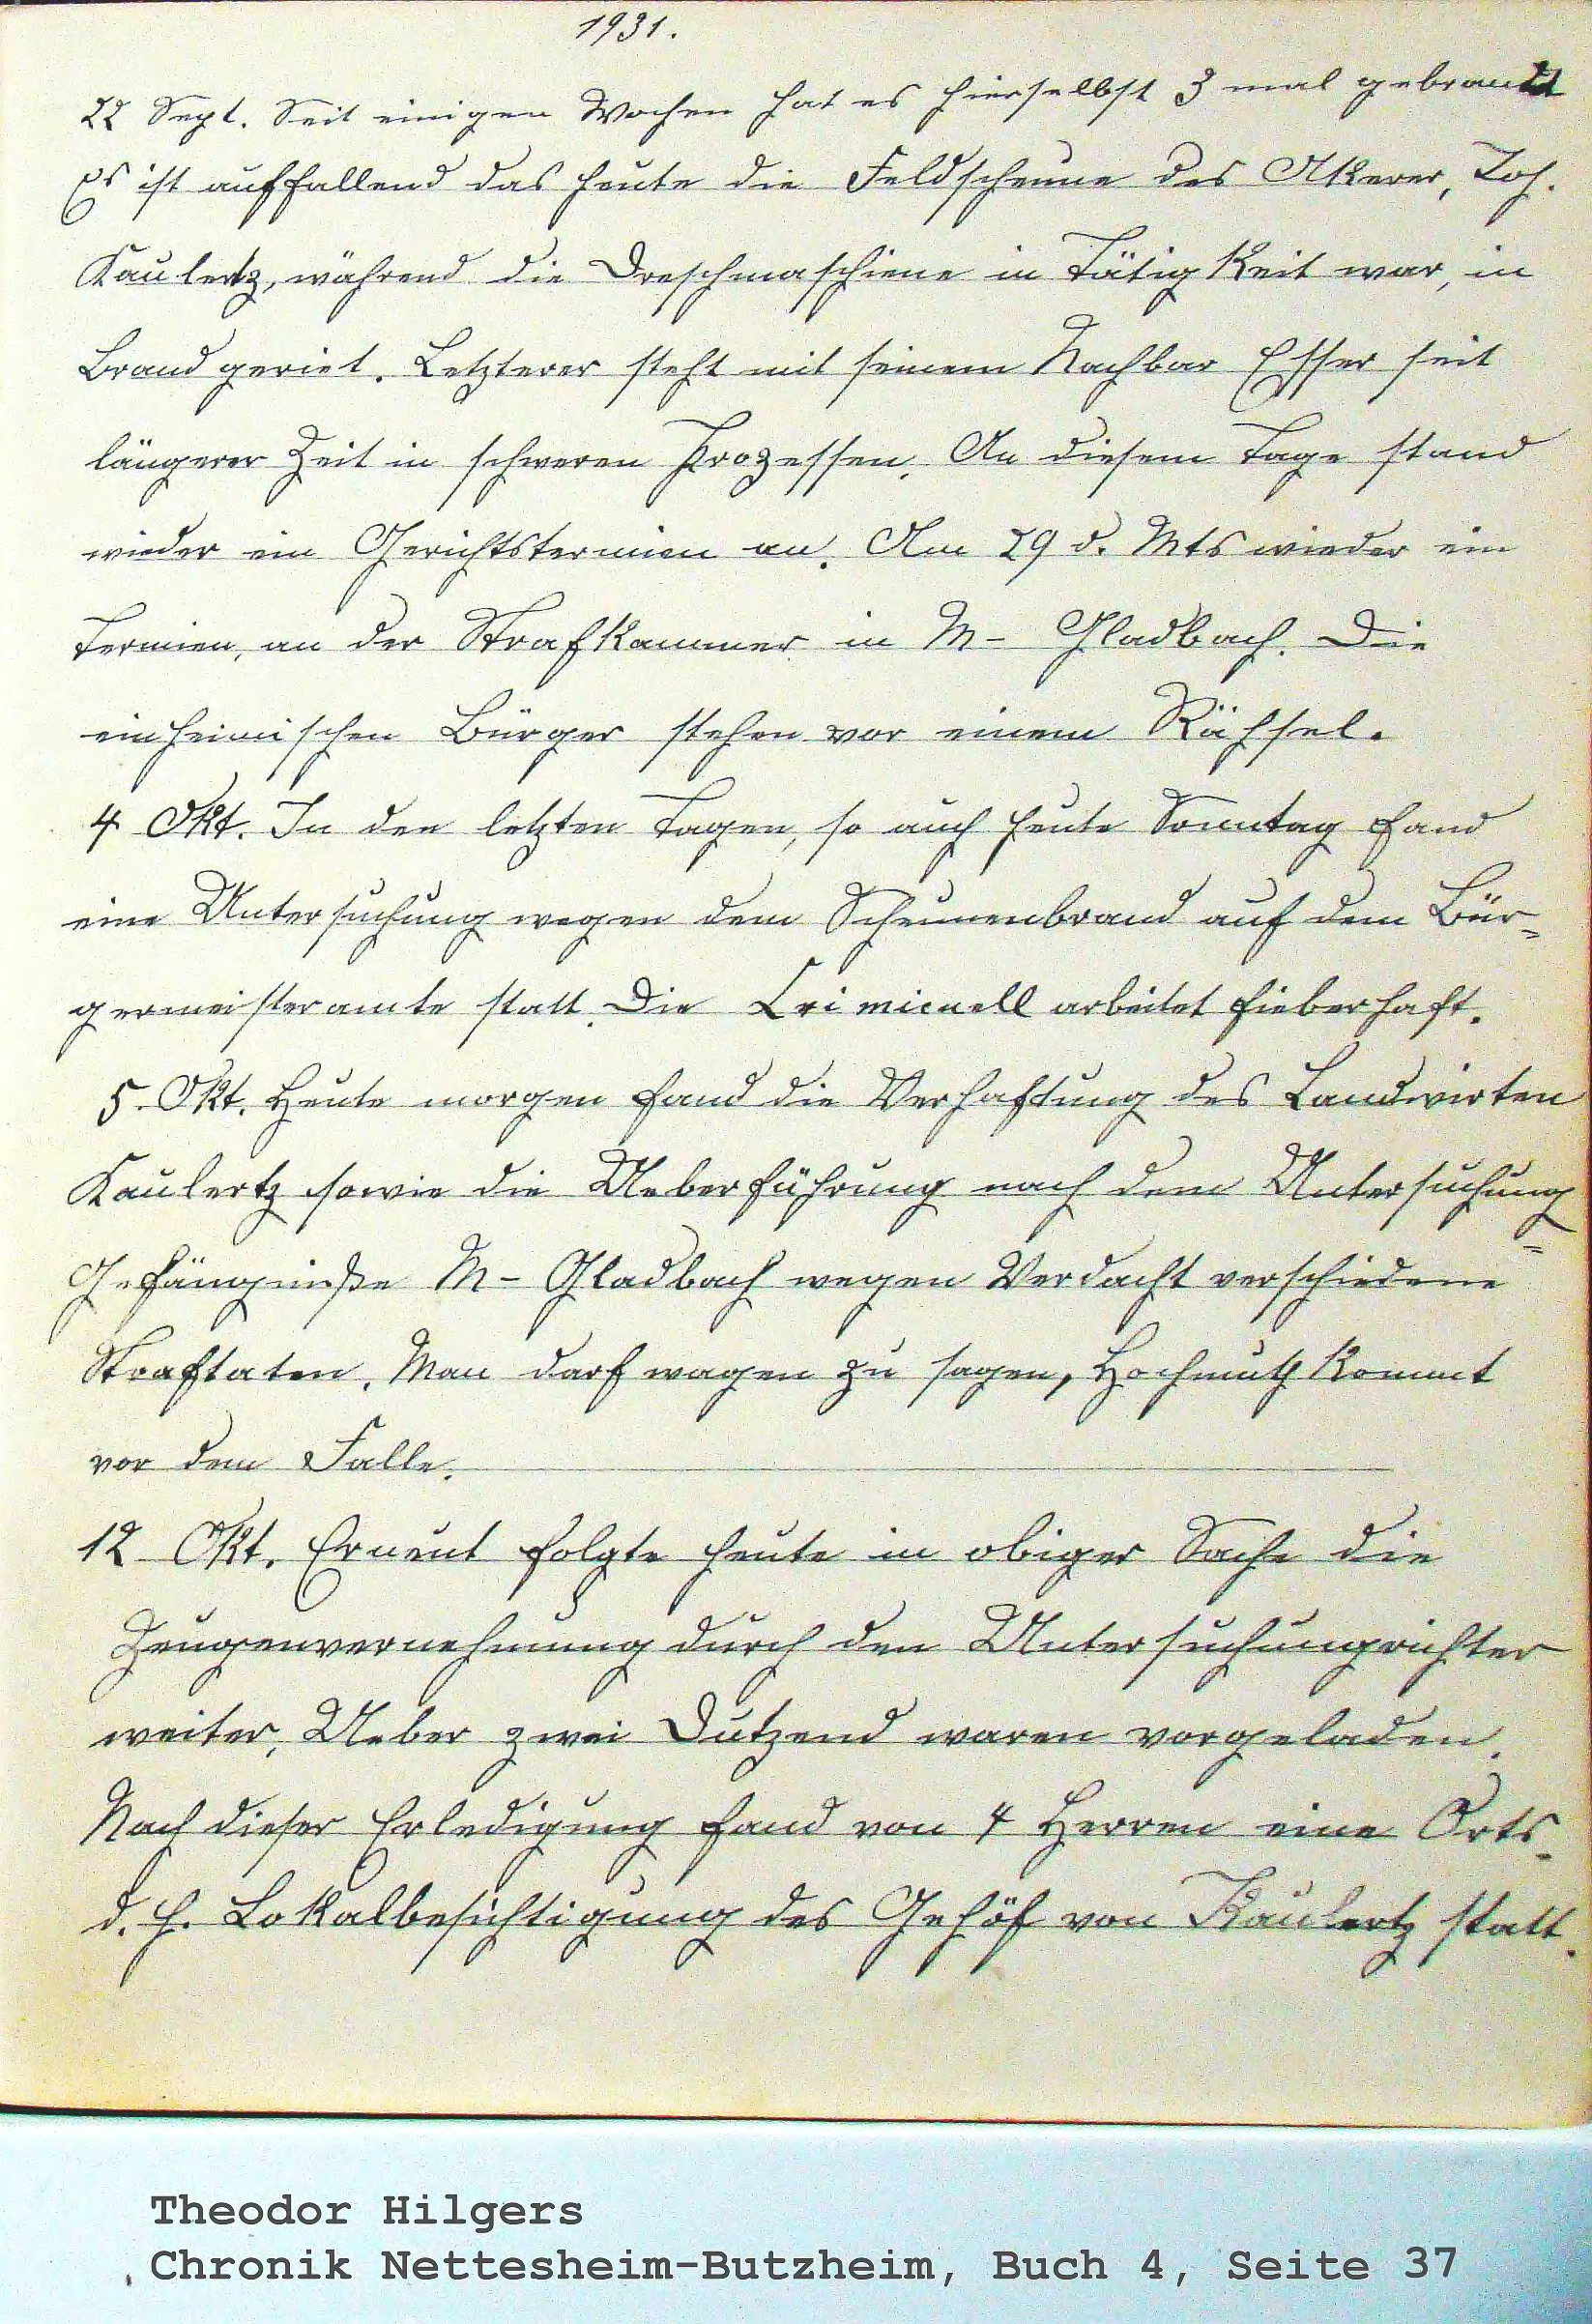 1931.
22 Sept. Seit einigen Wochen hat es hierselbst 3 mal gebrannt
Es ist auffallend das heute die Feldscheune des Akerer, Joh.
Kaulertz, während die Dreschmaschiene in Tätigkeit war, in
Brand geriet. Letzterer steht mit seinem Nachbar Esser seit
längerer Zeit in schweren Prozessen. An diesem Tage stand
wieder ein Gerichtstermien an. Am 29 d. Mts wieder ein
Termien, an der Strafkammer in M- Gladbach. Die
einheimischen Bürger stehen vor einem Rähsel.
4 Okt. In den letzten Tagen, so auch heute Sonntag fand
eine Untersuchung wegen dem Scheunenbrand auf dem Bür=
germeisteramte statt. Die Criminell arbeitet fieberhaft.
5. Okt. Heute morgen fand die Verhaftung des Landwirten
Kaulertz sowie die Ueberführung nach dem Untersuchung=
Gefängniße M- Gladbach wegen Verdacht verschiedene
Straftaten. Man darf wagen zu sagen, Hochmuth kommt
vor dem Falle.
12 Okt. Erneut folgte heute in obiger Sache die
Zeugenvernehmung durch den Untersuchungrichter
weiter. Ueber zwei Dutzend waren vorgeladen.
Nach dieser Erledigung fand von 4 Herren eine Orts-
d. h. Lokalbesichtigung des Gehöf von Kaulertz statt.
Theodor Hilgers
Chronik Nettesheim-Butzheim, Buch 4, Seite 37